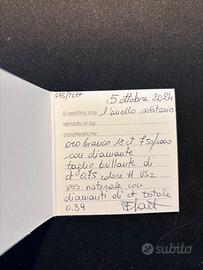 075/TCH
5 ottobre 2024
Si certifica che l'anello solitario
venduto al Sig.
caratteristiche:
oro bianco 18ct 750/000
con diamante
taglio brillante di
ct 0.75 colore H VS2
vero naturale con
diamanti di ct totale
0.39
subito